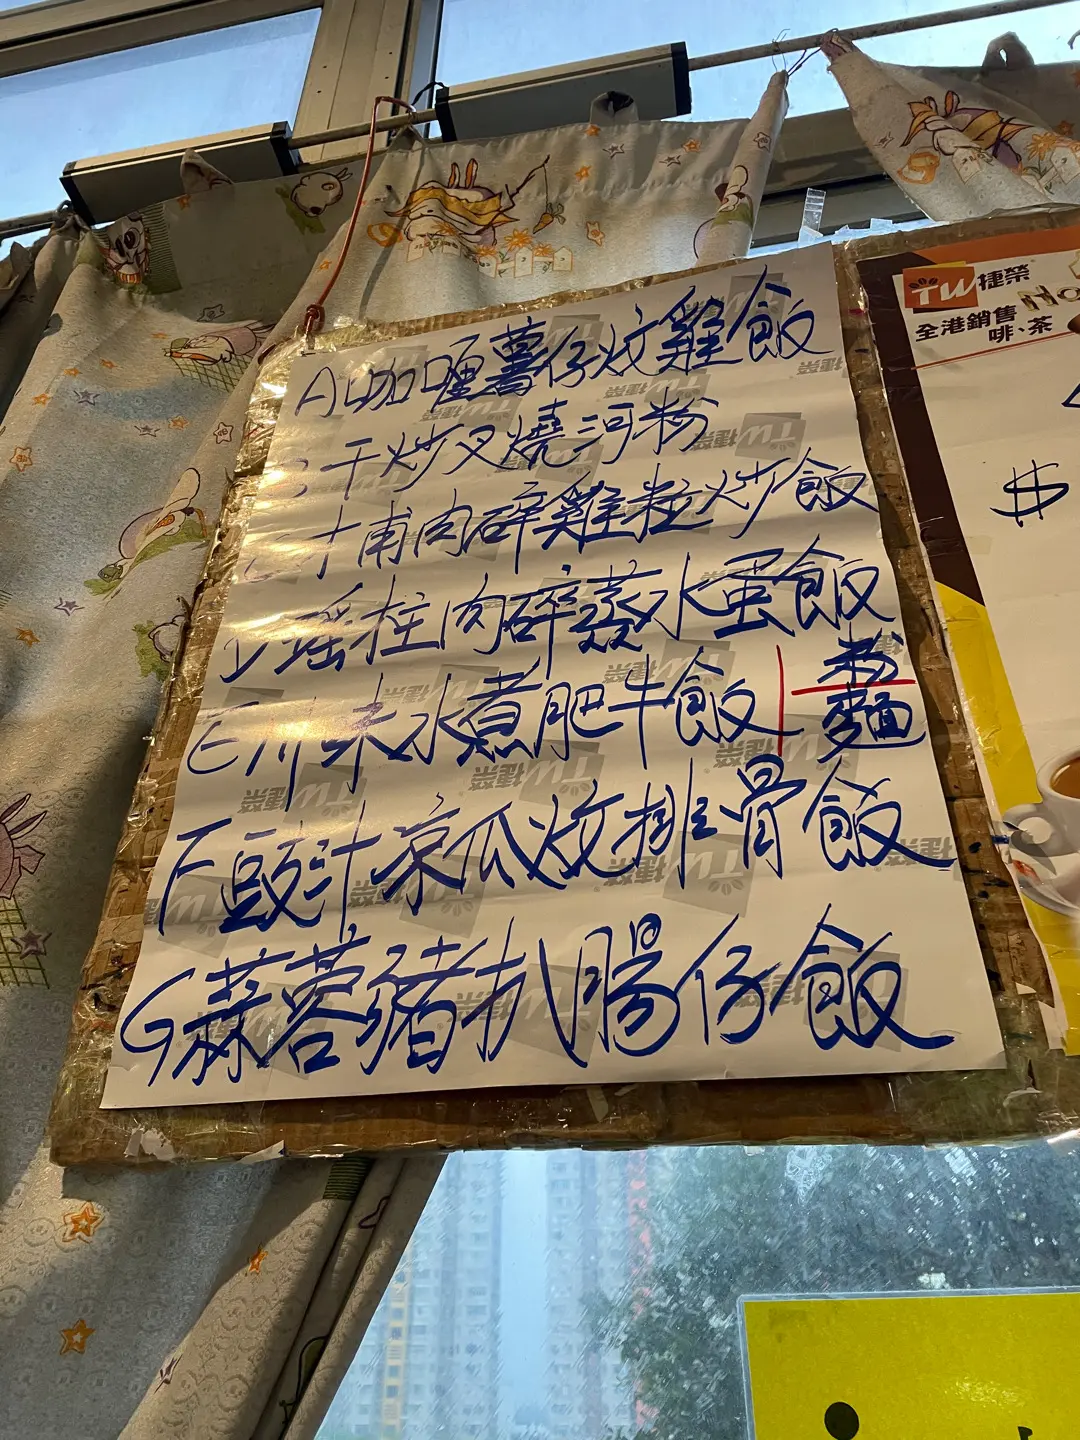 A 咖喱薯仔炆雞飯
干炒叉燒河粉
甫肉碎雞粒炒飯
瑶柱肉碎蒸水蛋飯
E 川味水煮肥牛飯 粉 麵
F 豆豉汁凉瓜炆排骨飯
G 蒜蓉豬扒腸仔飯
TW 捷榮®
全港銷售
啡、茶
Ho
$